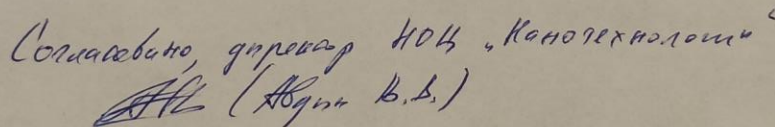 Согласовано, директор НОЦ „Нанотехнологии“
(Авдин В.В.)